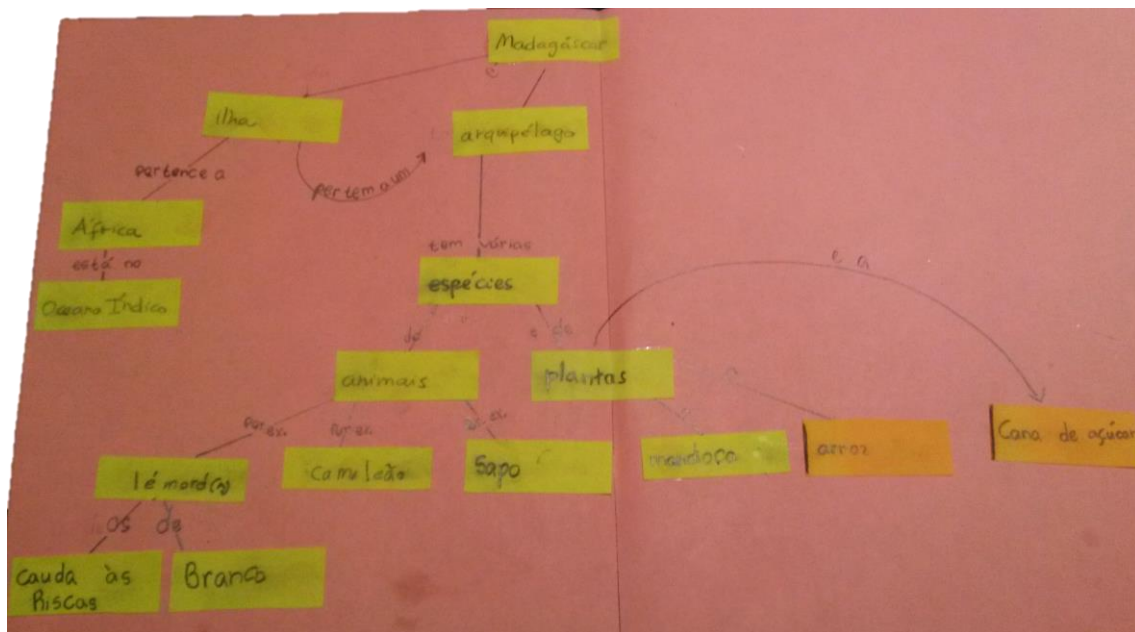 Madagáscar
é
ilha
arquipélago
pertence a
pertem a um
África
está no
Oceano Índico
tem várias
espécies
é a
de
e de
animais
plantas
por ex.
por ex.
por ex.
lémord(s)
camaleão
Sapo
mandioca
arroz
Cana de açúcar
os
de
Cauda às
Riscas
Branco